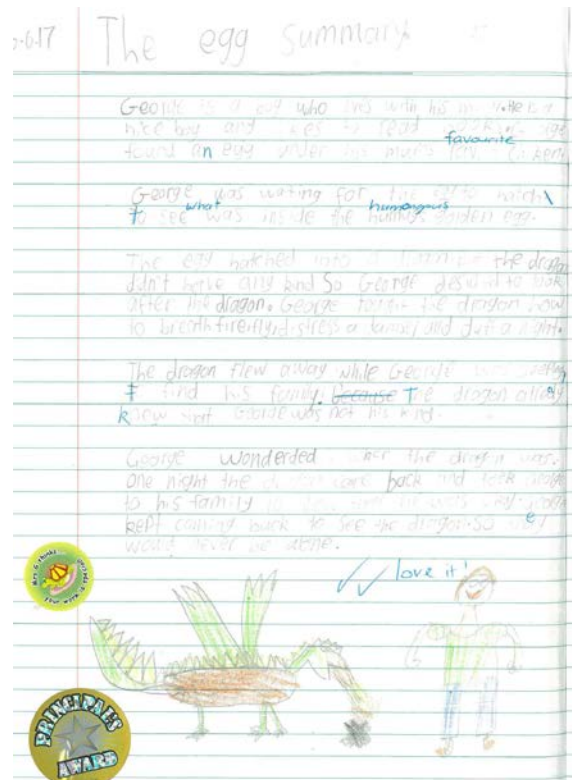 The egg summary
George is a boy who lives with his He is a
nice boy and likes to read
favourite
found an egg under his mum's
George was waiting for the egg to hatch
what humongous
To see was inside the golden egg.
The egg hatched into a the dragon
didn't have any kind So George desided to look
after the dragon. George taught the dragon how
to breath fire, fly, distress a damsel and
The dragon flew away while George was
To find his family. because The dragon already
knew that George was not his kind.
George wonderded wher the dragon was.
one night the dragon came back and took George
to his family to
kept coming back to see the dragon. So they
would never be alone.
love it!
Mrs G thinks your work is
PRINCIPALS
AWARD